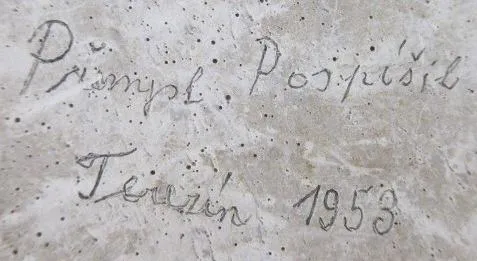 Přemysl. Pospíšil.
Terezín 1953